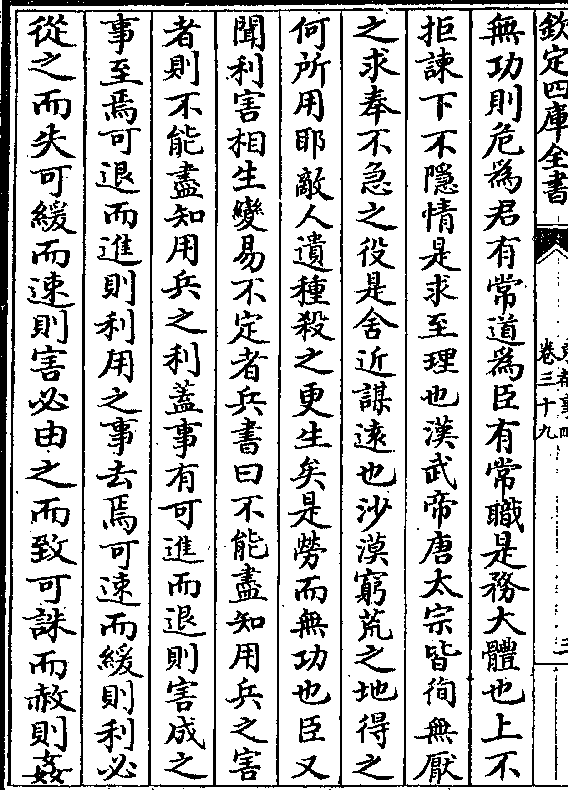 欽定四庫全書
卷三十九
無功則危為君有常道為臣有常職是務大體也上不
拒諫下不隱情是求至理也漢武帝唐太宗皆徇無厭
之求奉不急之役是舍近謀遠也沙漠窮荒之地得之
何所用耶敵人遺種殺之更生矣是勞而無功也臣又
聞利害相生變易不定者兵書曰不能盡知用兵之害
者則不能盡知用兵之利蓋事有可進而退則害成之
事至焉可退而進則利用之事去焉可速而緩則利必
從之而失可緩而速則害必由之而致可誅而赦則姦